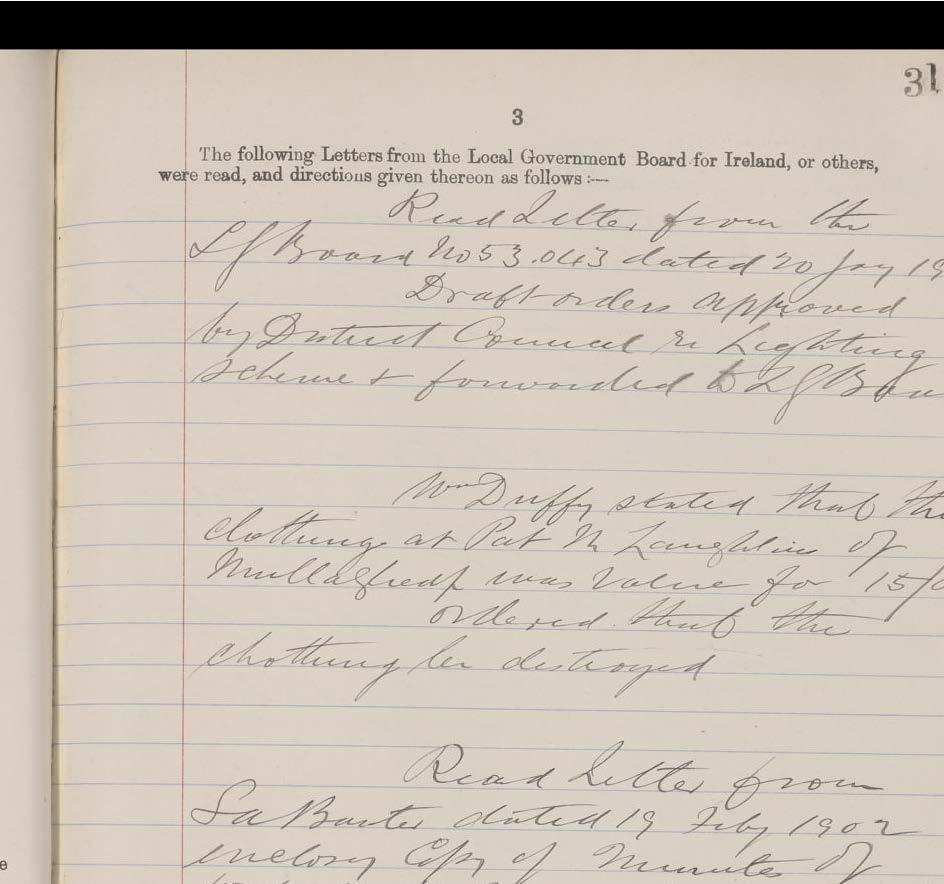 31
3
The following Letters from the Local Government Board for Ireland, or others,
were read, and directions given thereon as follows :—
Read Letter from the
LG Board No 53.043 dated 20 Jay 19
Draft orders approved
by District Council re Lighting
scheme & forwarded to LG Boa
Wm Duffy stated that the
clothing at Pat McLaughlins of
was value for 15/0
ordered that the
clothing be destroyed
Read Letter from
dated 19 Feby 1902
enclosg Copy of Minutes of
e